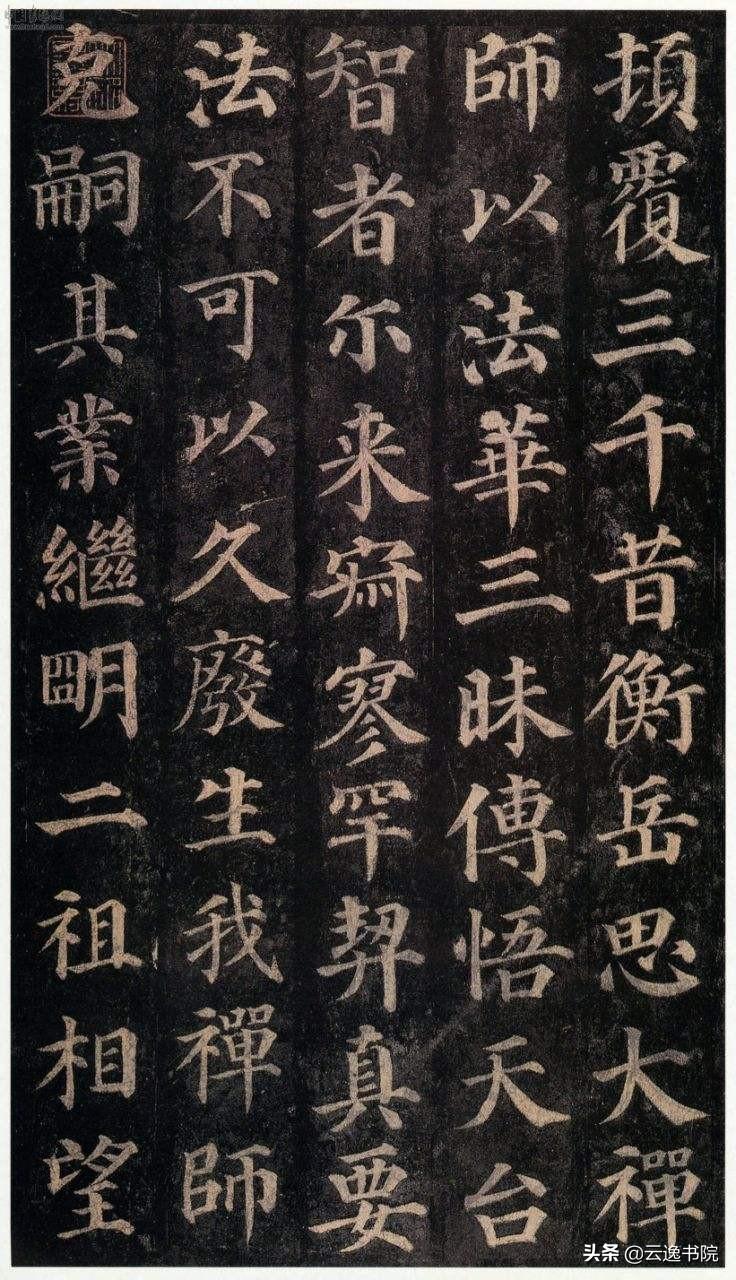 頃覆三千昔衡岳思大禪
師以法華三昧傳悟天台
智者尓来寂寥罕契真要
法不可以久廢生我禪師
克嗣其業繼明二祖相望
头条 @云逸书院